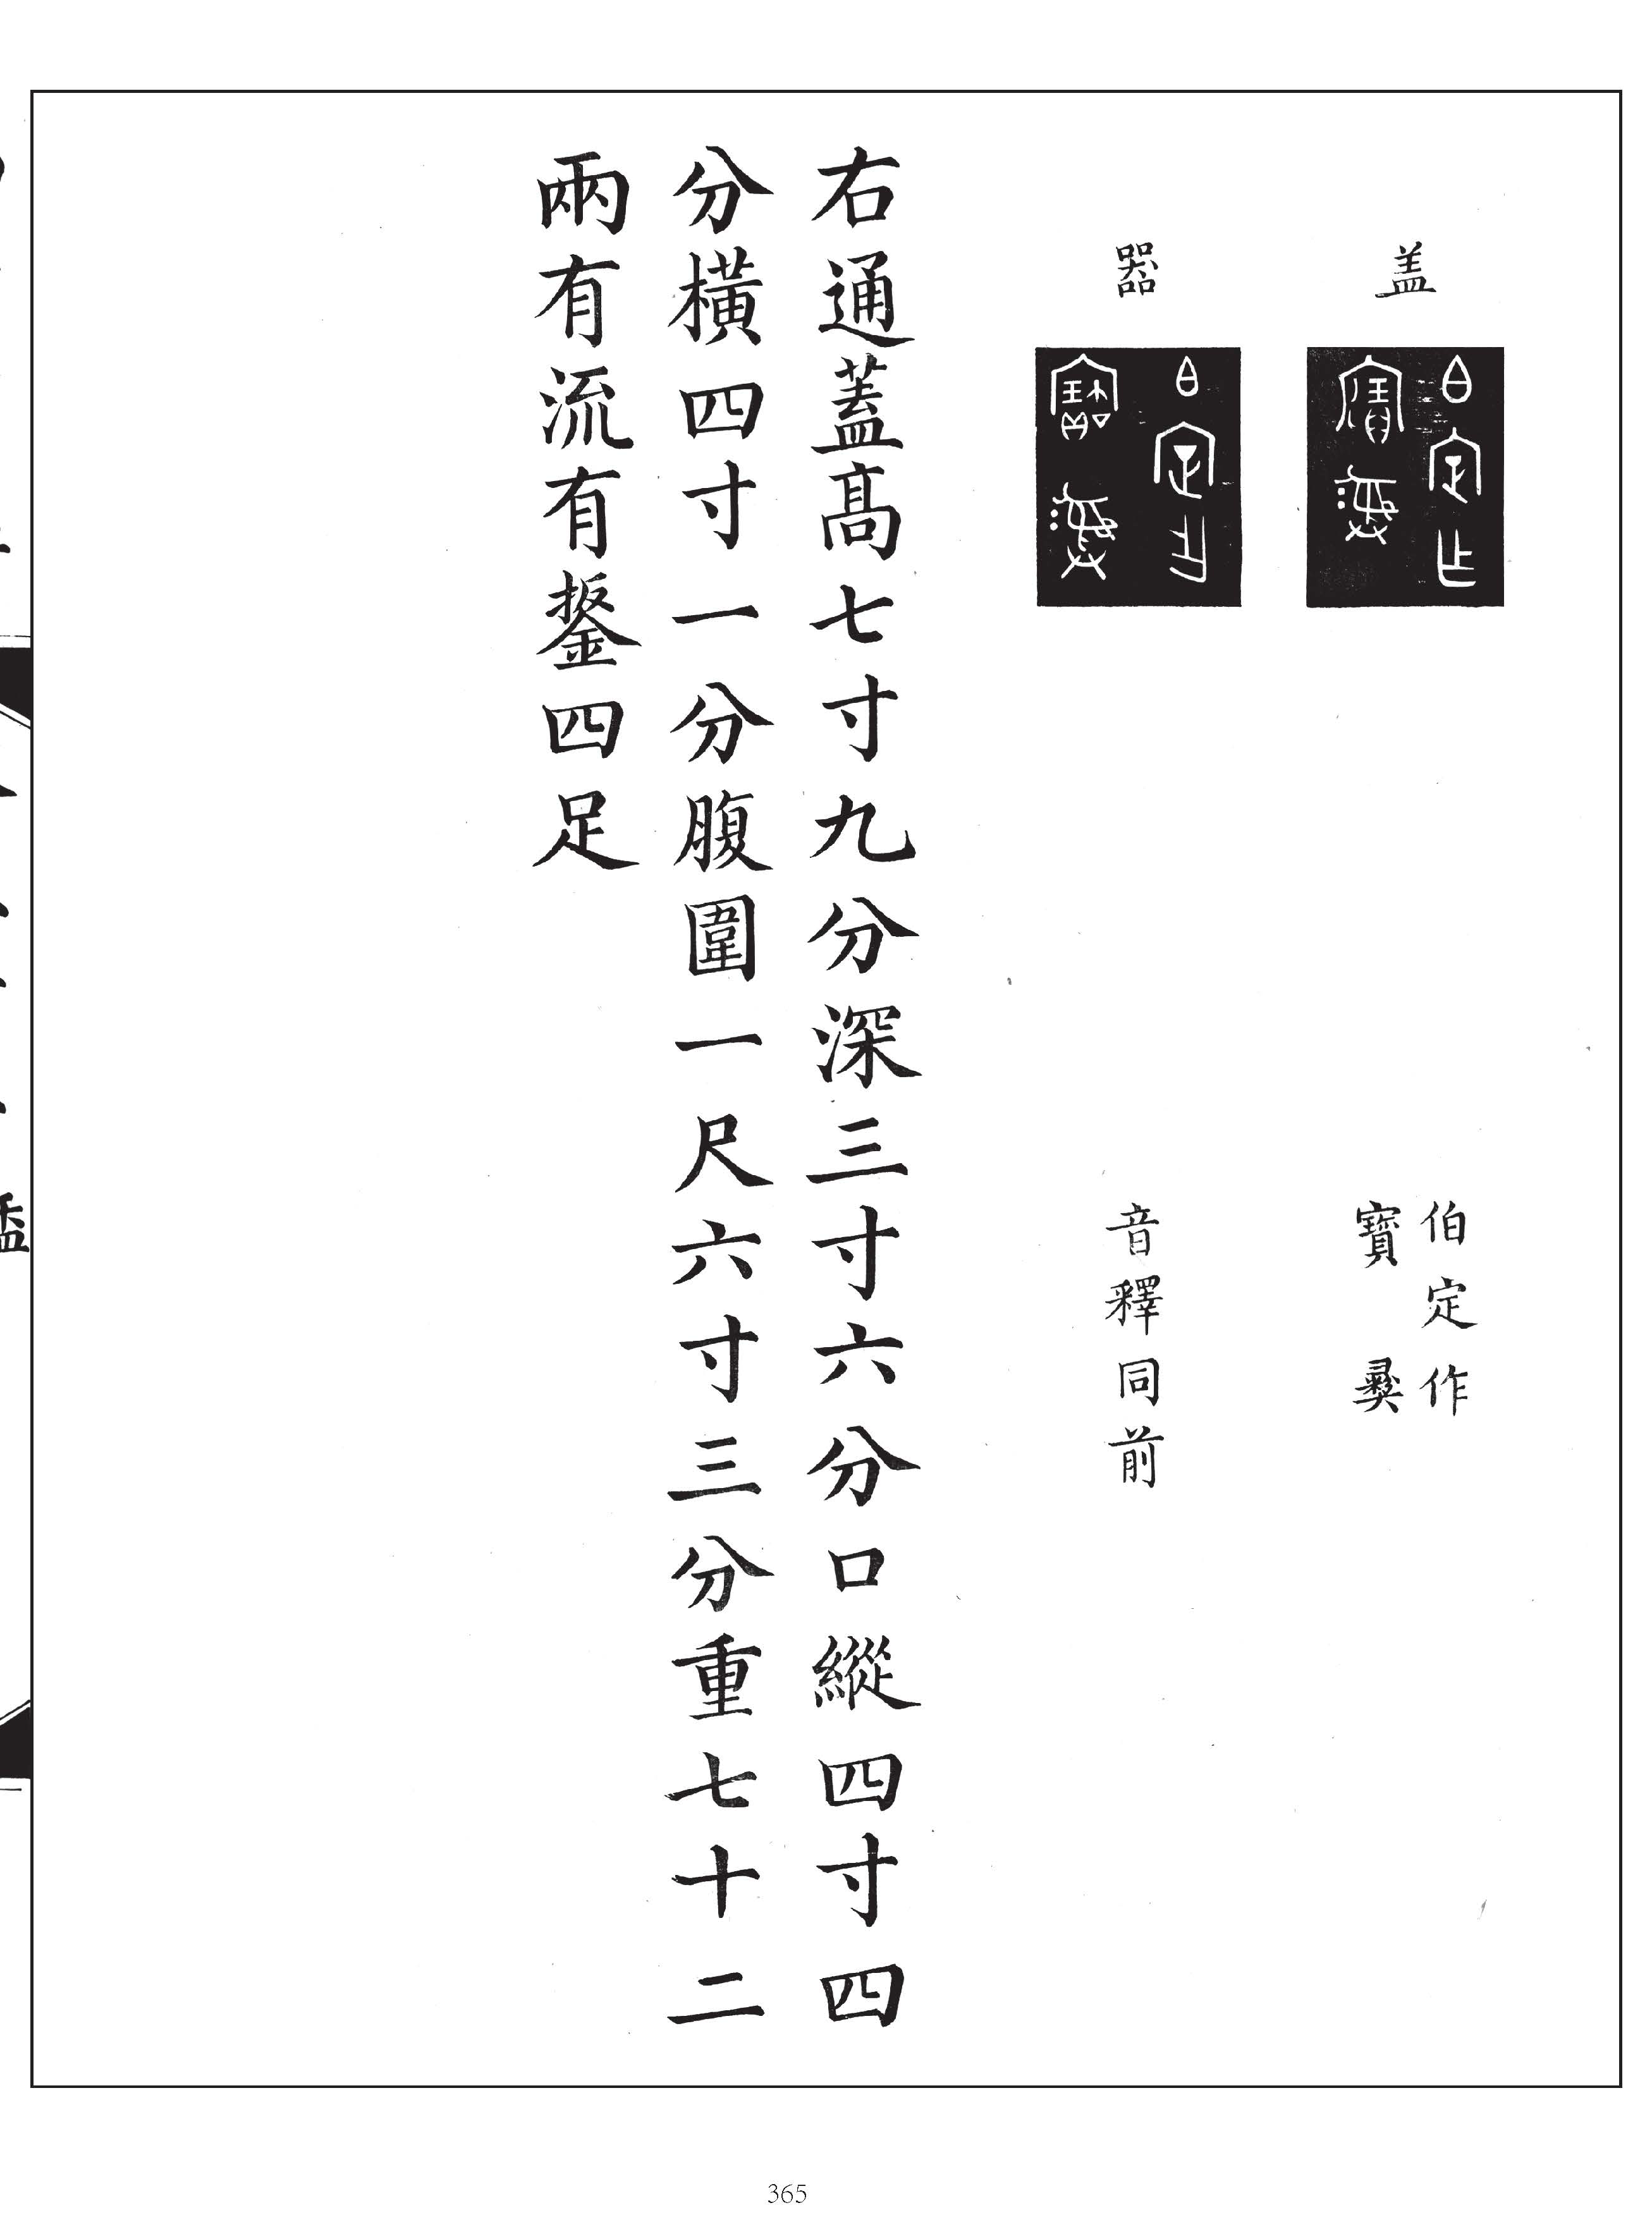 盖
伯定作
寶彝
器
音釋同前
右通蓋高七寸九分深三寸六分口縱四寸四
分橫四寸一分腹圍一尺六寸三分重七十二
兩有流有鋬四足
365